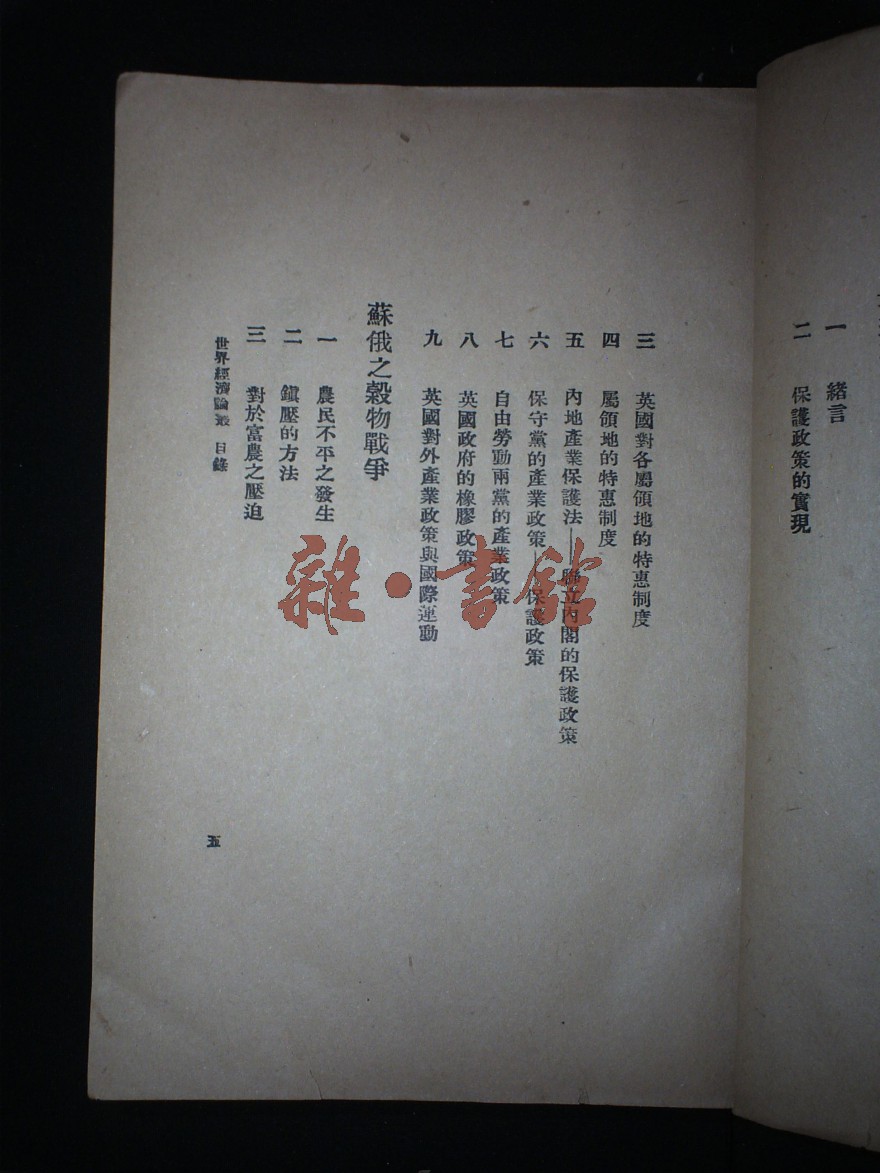 一 緒言
二 保護政策的實現
三 英國對各屬領地的特惠制度
四 屬領地的特惠制度
五 內地產業保護法——聯立內閣的保護政策
六 保守黨的產業政策——保護政策
七 自由勞動兩黨的產業政策
八 英國政府的橡膠政策
九 英國對外產業政策與國際運動
蘇俄之穀物戰爭
一 農民不平之發生
二 鎮壓的方法
三 對於富農之壓迫
世界經濟論叢 目錄
五
雜·書館